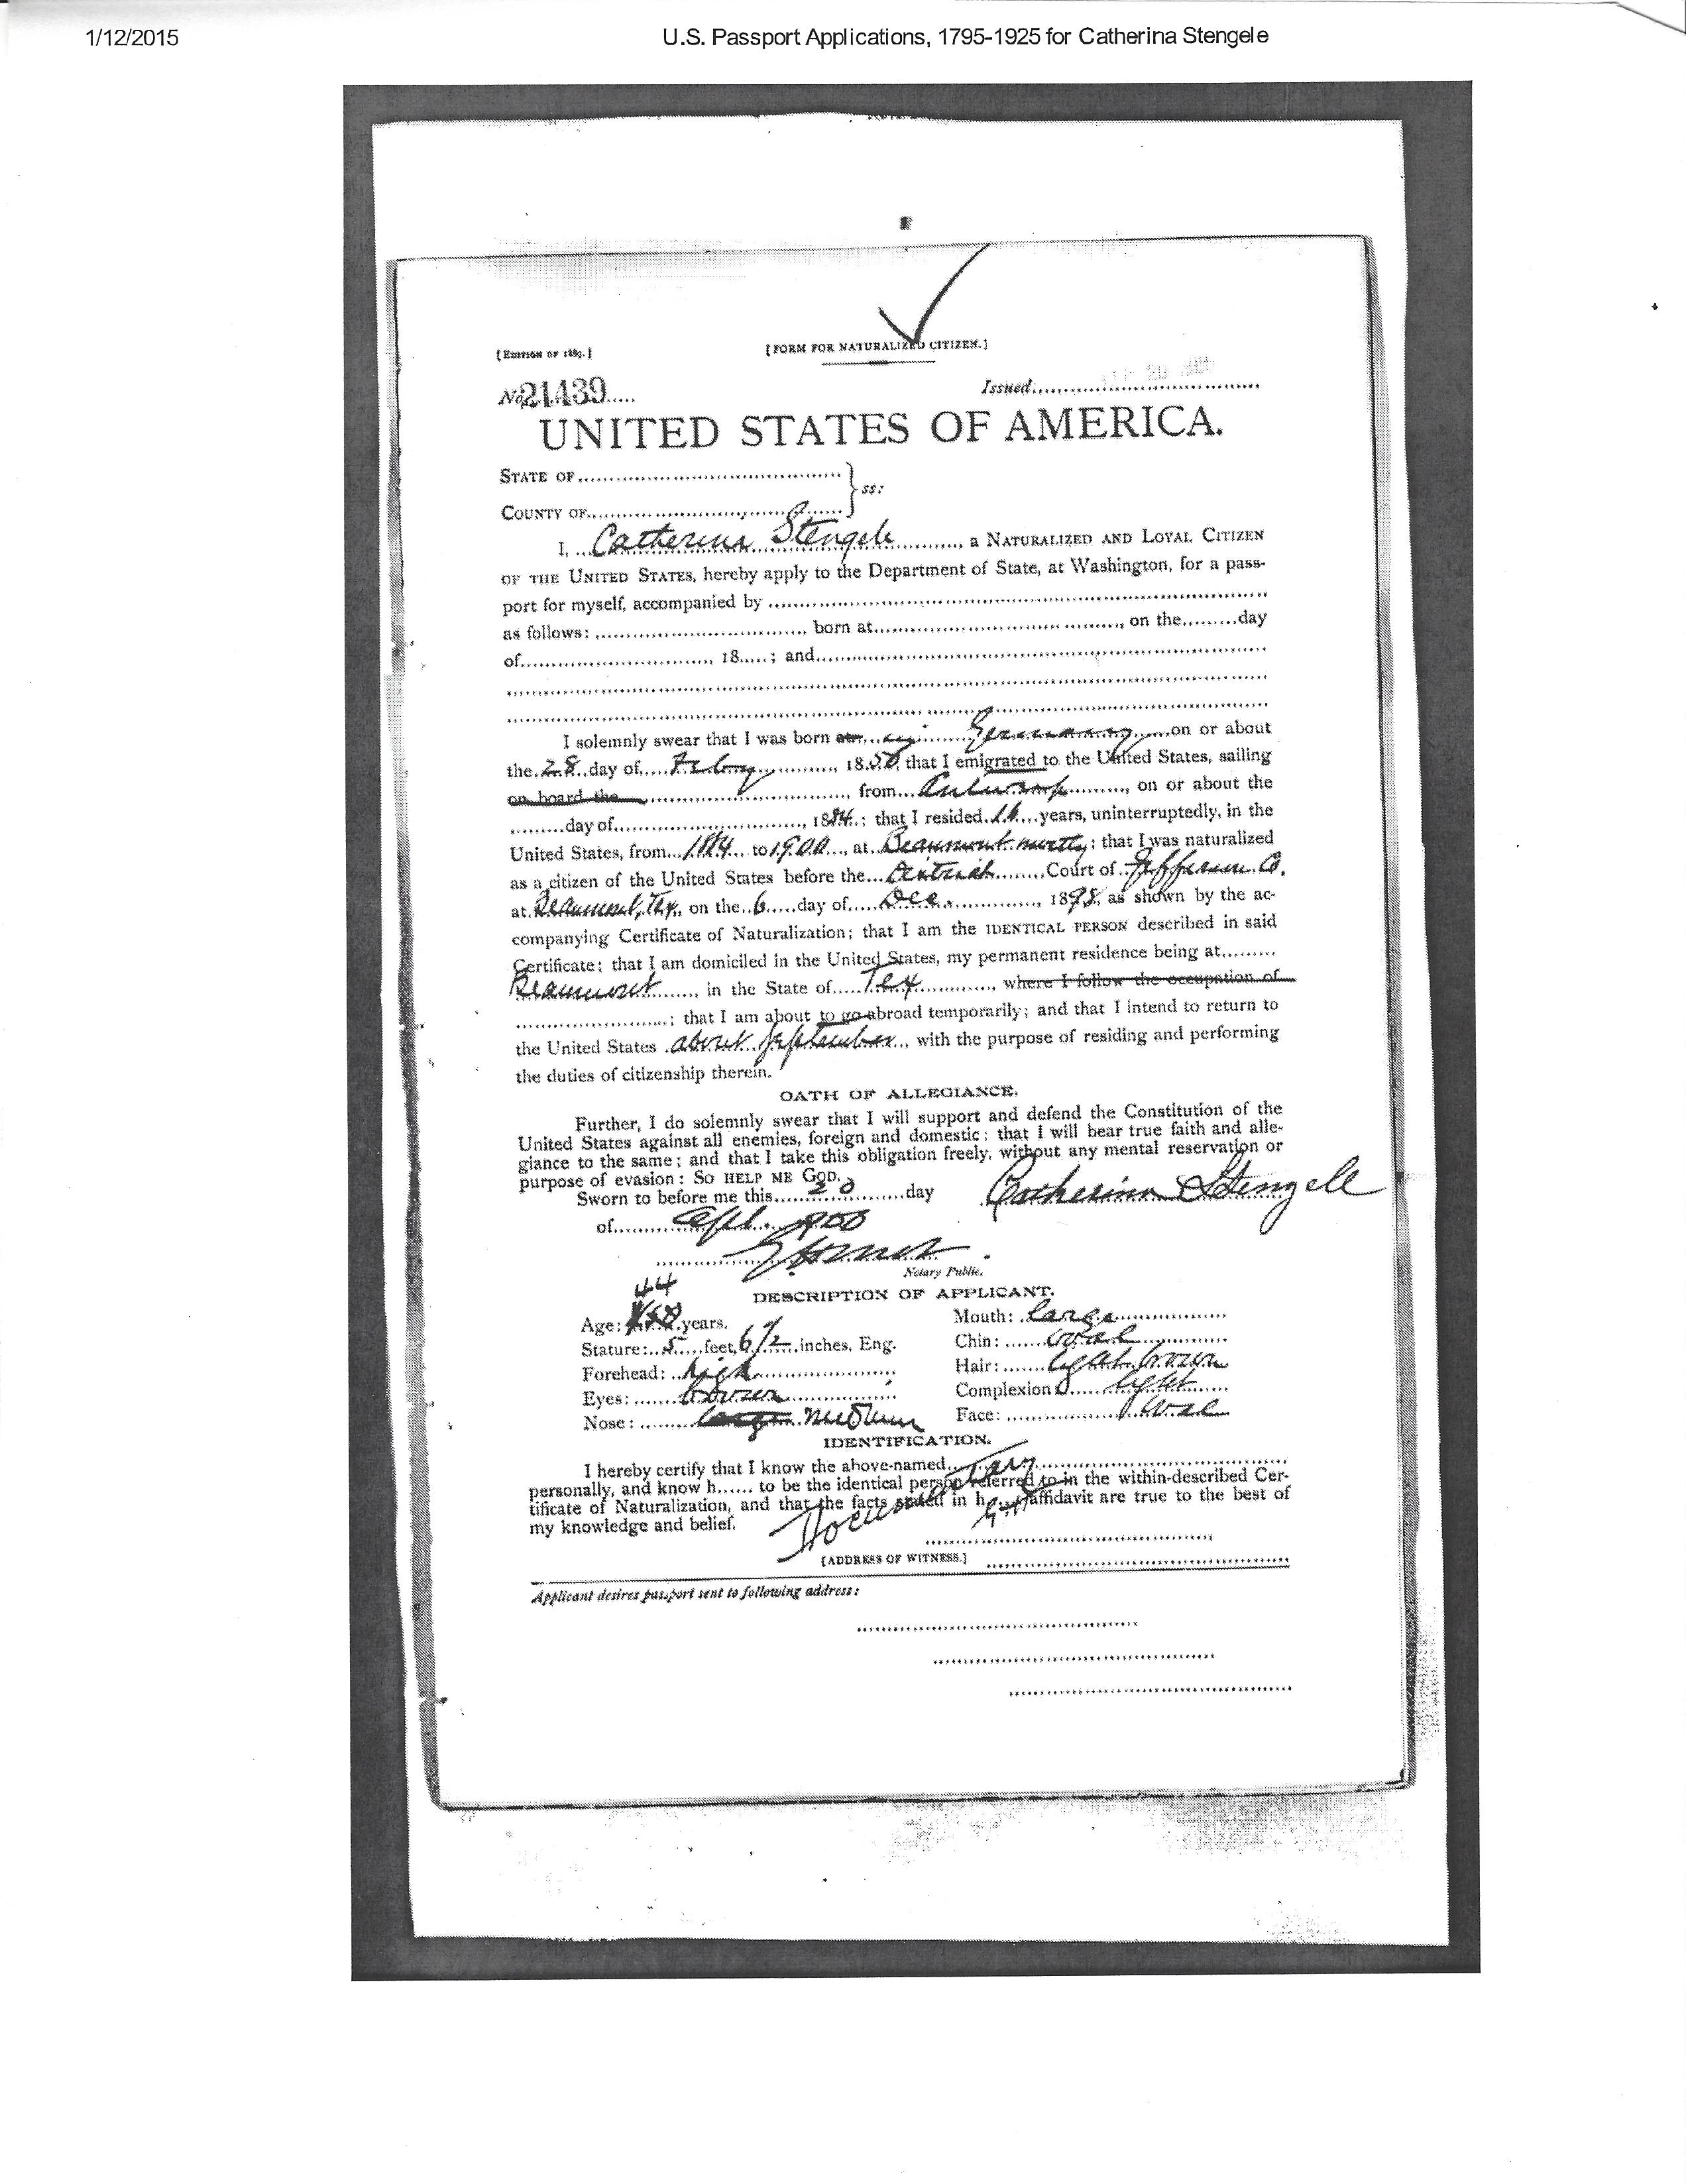 1/12/2015 U.S. Passport Applications, 1795-1925 for Catherina Stengele
[EDITION OF 1889.] [FORM FOR NATURALIZED CITIZEN.]
No. 21439 Issued
UNITED STATES OF AMERICA.
STATE OF
ss:
COUNTY OF
I, Catherina Stengele, a NATURALIZED AND LOYAL CITIZEN
OF THE UNITED STATES, hereby apply to the Department of State, at Washington, for a pass-
port for myself, accompanied by
as follows: born at, on the day
of, 18 ; and
I solemnly swear that I was born at in Germany on or about
the 28 day of Febry, 1850, that I emigrated to the United States, sailing
on board the, from Antwerp, on or about the
day of, 1884; that I resided 16 years, uninterruptedly, in the
United States, from 1884 to 1900, at Beaumont mostly; that I was naturalized
as a citizen of the United States before the District Court of Jefferson Co.
at Beaumont, Tex, on the 6 day of Dec., 1898, as shown by the ac-
companying Certificate of Naturalization; that I am the IDENTICAL PERSON described in said
Certificate; that I am domiciled in the United States, my permanent residence being at
Beaumont, in the State of Tex, where I follow the occupation of
; that I am about to go abroad temporarily; and that I intend to return to
the United States about September, with the purpose of residing and performing
the duties of citizenship therein.
OATH OF ALLEGIANCE.
Further, I do solemnly swear that I will support and defend the Constitution of the
United States against all enemies, foreign and domestic; that I will bear true faith and alle-
giance to the same; and that I take this obligation freely, without any mental reservation or
purpose of evasion: SO HELP ME GOD.
Sworn to before me this 20 day Catherina Stengele
of 1900
Notary Public.
44
DESCRIPTION OF APPLICANT.
Age: years. Mouth: large
Stature: 5 feet, 6 1/2 inches, Eng. Chin: oval
Forehead: high Hair: light brown
Eyes: brown Complexion: light
Nose: large medium Face: oval
IDENTIFICATION.
I hereby certify that I know the above-named
personally, and know h to be the identical person referred to in the within-described Cer-
tificate of Naturalization, and that the facts stated in h affidavit are true to the best of
my knowledge and belief.
[ADDRESS OF WITNESS.]
Applicant desires passport sent to following address: